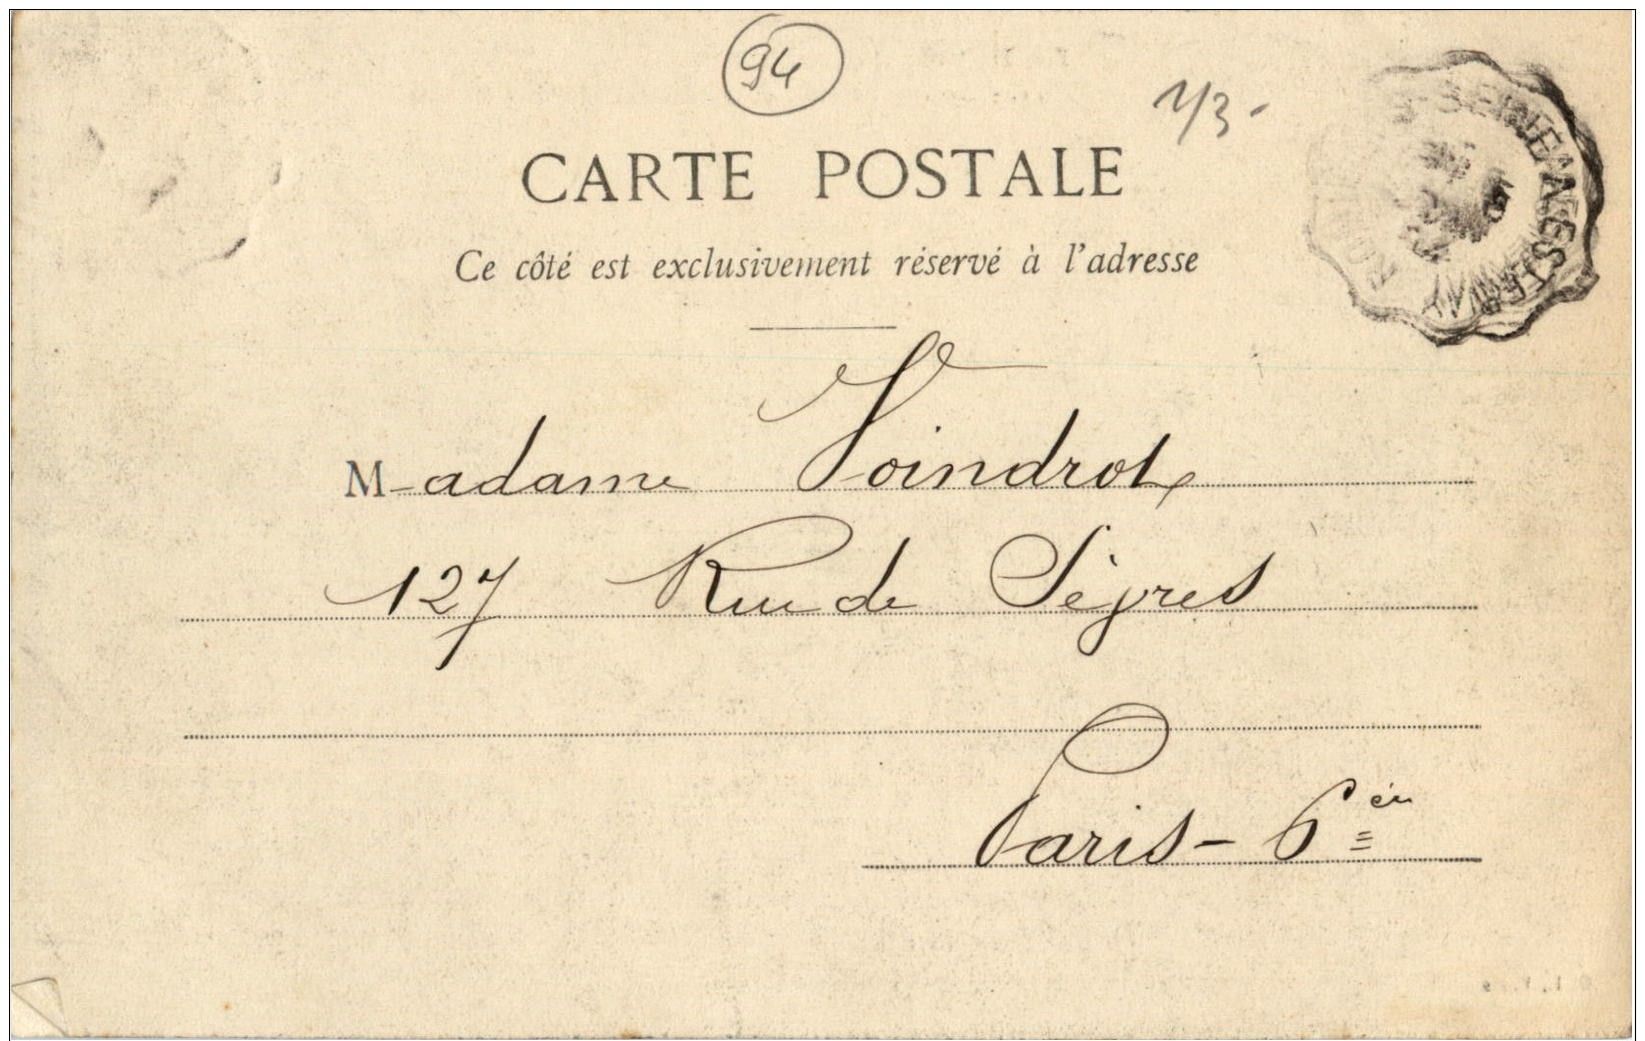 94
1/3-
CARTE POSTALE
Ce côté est exclusivement réservé à l'adresse
Madame Voindrot
127 Rue de Sèvres
Paris - 6èm